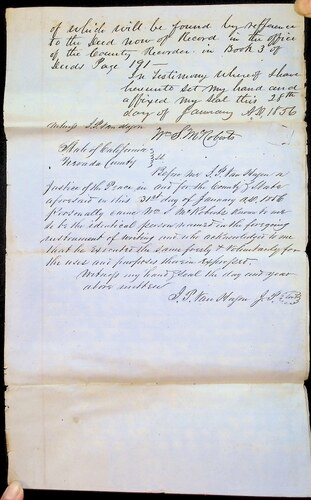 of which will be found by refference
to the Deed now of Record in the office
of the County Recorder in Book 3 of
Deeds Page 191—
In Testimony whereof I have
hereunto set my hand and
affixed my Seal this 28th
day of January A.D. 1856
Witness J. P. Van Hagen
Wm S. McRoberts
State of California
Nevada County } SS
Before me J. P. Van Hagen a
Justice of the Peace in and for the County & State
aforesaid on this 31st day of January A.D. 1856
Personally came Wm S. McRoberts known to me
to be the identical person named in the foregoing
instrument of writing and who acknowledged to me
that he executed the same freely & voluntarily for
the uses and purposes therein expressed.
Witness my hand & Seal the day and year
above written
J. P. Van Hagen J. P. Seal